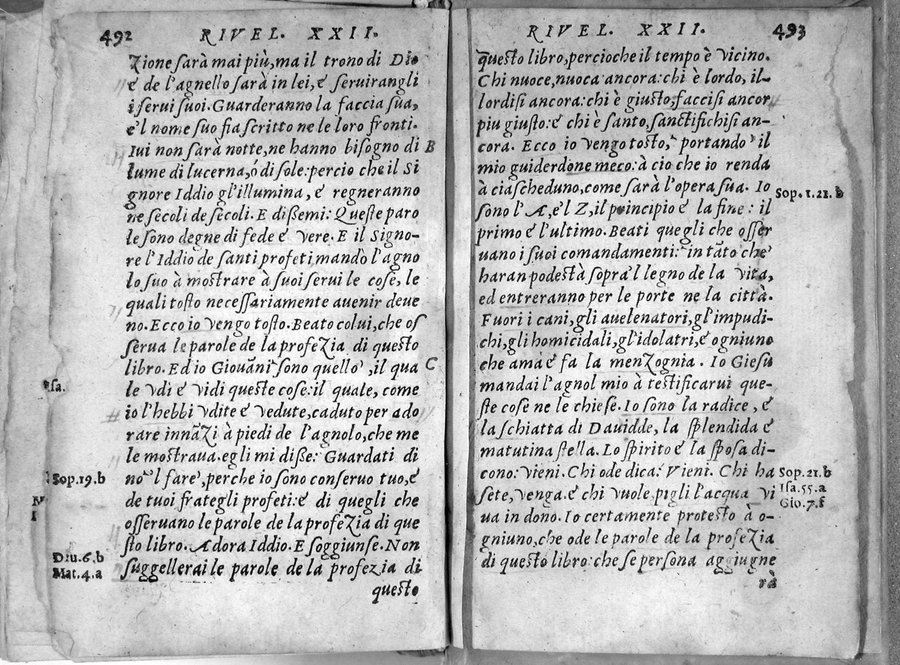 492 RIVEL. XXII.
Zione sarà mai più, ma il trono di Dio
è de l'agnello sarà in lei, è seruirangli
i serui suoi. Guarderanno la faccia sua,
è'l nome suo fia scritto ne le loro fronti.
Iui non sarà notte, ne hanno bisogno di B
lume di lucerna, ó di sole: percio che il Si
gnore Iddio gl'illumina, è regneranno
ne secoli de secoli. E dißemi: Queste paro
le sono degne di fede è vere. E il Signo-
re l'Iddio de santi profeti, mandò l'agno
lo suo à mostrare à suoi serui le cose, le
quali tosto necessariamente auenir deue
no. Ecco io vengo tosto. Beato colui, che os
serua le parole de la profeZia di questo
libro. Ed io Giouãni sono quello, il qua C
Isa. le vdi è vidi queste cose: il quale, come
io l'hebbi vdite è vedute, caduto per ado
rare innãZi à piedi de l'agnolo, che me
le mostraua. egli mi diße: Guardati di
Sop. 19. b nol fare, perche io sono conseruo tuo, è
de tuoi frategli profeti: è di quegli che
osseruano le parole de la profeZia di que
sto libro. Adora Iddio. E soggiunse. Non
Diu. 6. b
Mat. 4. a suggellerai le parole de la profezia di
questo
RIVEL. XXII. 493
questo libro, percioche il tempo è vicino.
Chi nuoce, nuoca ancora: chi è lordo, il-
lordisi ancora: chi è giusto, faccisi ancor
piu giusto: è chi è santo, sanctifichisi an-
cora. Ecco io vengo tosto, portando il
mio guiderdone meco: à cio che io renda
à ciascheduno, come sarà l'opera sua. Io Sop. 1. 21. b
sono l'A, è'l Z, il principio è la fine: il
primo è l'ultimo. Beati quegli che osser
uano i suoi comandamenti: in tãto che
haran podestà sopra'l legno de la vita,
ed entreranno per le porte ne la città.
Fuori i cani, gli auelenatori, gl'impudi-
chi, gli homicidali, gl'idolatri, è ogniuno
che ama è fa la menZognia. Io Giesu
mandai l'agnol mio à testificarui que-
ste cose ne le chiese. Io sono la radice, è
la schiatta di Dauidde, la splendida è
matutina stella. Lo spirito è la sposa di-
cono: Vieni. Chi ode dica: Vieni. Chi ha Sop. 21. b
sete, venga. è chi vuole pigli l'acqua vi Isa. 55. a
ua in dono. Io certamente protesto à o- Gio. 7. f
gniuno, che ode le parole de la profeZia
di questo libro: che se persona aggiugne
rà